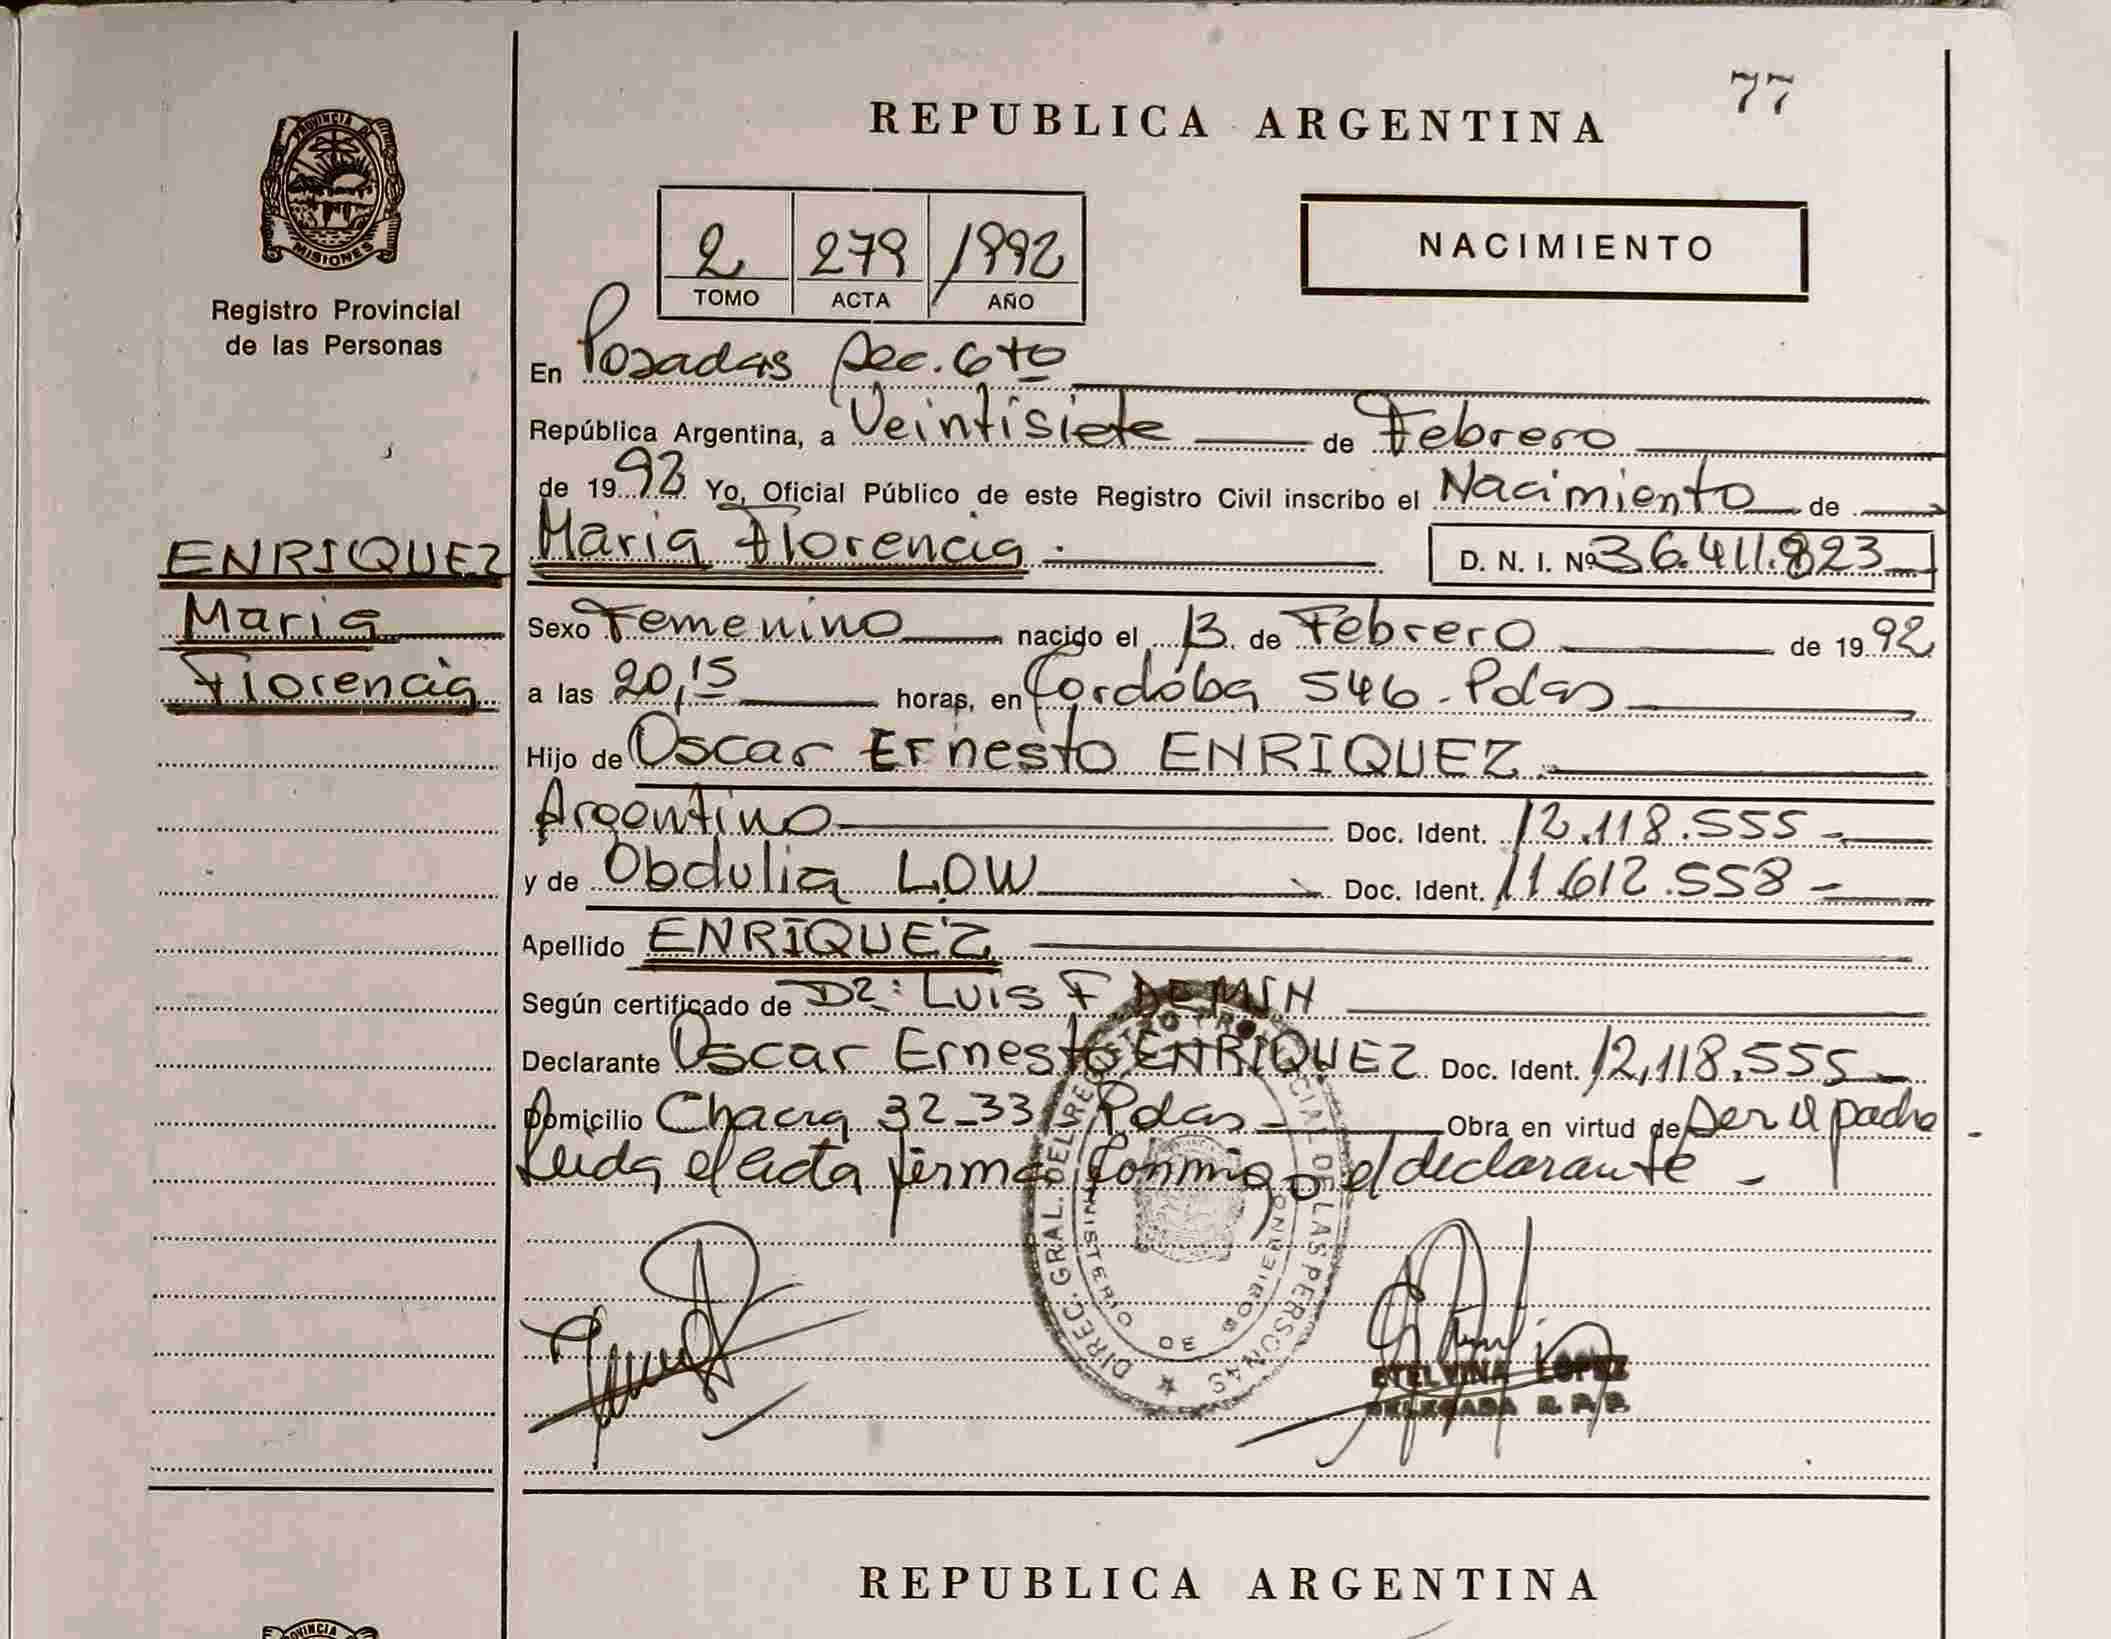 77
REPUBLICA ARGENTINA
PROVINCIA DE
MISIONES
Registro Provincial
de las Personas
2 279 1992
TOMO ACTA AÑO
NACIMIENTO
En Posadas Sec. 6to
República Argentina, a Veintisiete de Febrero
de 1992 Yo, Oficial Público de este Registro Civil inscribo el Nacimiento de
ENRIQUEZ
Maria
Florencia
Maria Florencia D. N. I. Nº 36.411.823
Sexo Femenino nacido el 13 de Febrero de 1992
a las 20,15 horas, en Cordóba 546. Pdas
Hijo de Oscar Ernesto ENRIQUEZ
Argentino Doc. Ident. 12.118.555
y de Obdulia LOW Doc. Ident. 11.612.558
Apellido ENRIQUEZ
Según certificado de Dr: Luis F
Declarante Oscar Ernesto ENRIQUEZ Doc. Ident. 12,118,555
Domicilio Chacra 32-33 Pdas Obra en virtud de Ser el padre
Leida el acta firma conmigo el declarante
DIREC. GRAL. DEL REGISTRO PROVINCIAL DE LAS PERSONAS
MINISTERIO DE GOBIERNO
ETELVINA LOPEZ
DELEGADA R. P. P.
REPUBLICA ARGENTINA
PROVINCIA